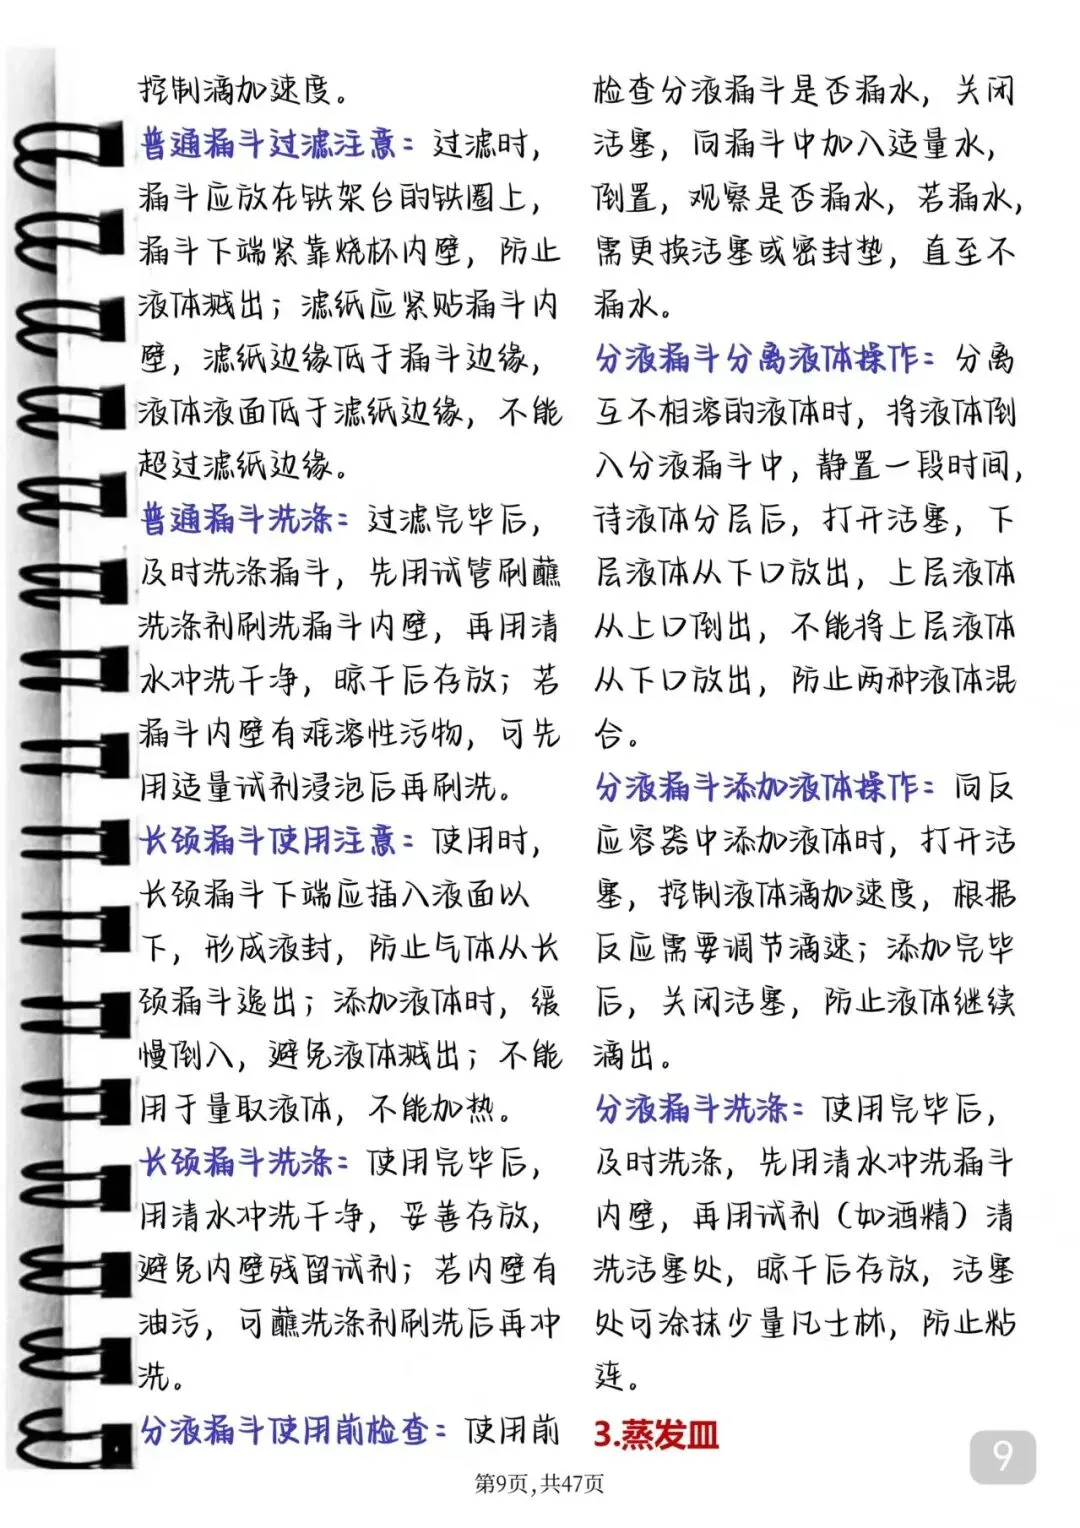 控制滴加速度。
普通漏斗过滤注意：过滤时，
漏斗应放在铁架台的铁圈上，
漏斗下端紧靠烧杯内壁，防止
液体溅出；滤纸应紧贴漏斗内
壁，滤纸边缘低于漏斗边缘，
液体液面低于滤纸边缘，不能
超过滤纸边缘。
普通漏斗洗涤：过滤完毕后，
及时洗涤漏斗，先用试管刷蘸
洗涤剂刷洗漏斗内壁，再用清
水冲洗干净，晾干后存放；若
漏斗内壁有难溶性污物，可先
用适量试剂浸泡后再刷洗。
长颈漏斗使用注意：使用时，
长颈漏斗下端应插入液面以
下，形成液封，防止气体从长
颈漏斗逸出；添加液体时，缓
慢倒入，避免液体溅出；不能
用于量取液体，不能加热。
长颈漏斗洗涤：使用完毕后，
用清水冲洗干净，妥善存放，
避免内壁残留试剂；若内壁有
油污，可蘸洗涤剂刷洗后再冲
洗。
分液漏斗使用前检查：使用前
检查分液漏斗是否漏水，关闭
活塞，向漏斗中加入适量水，
倒置，观察是否漏水，若漏水，
需更换活塞或密封垫，直至不
漏水。
分液漏斗分离液体操作：分离
互不相溶的液体时，将液体倒
入分液漏斗中，静置一段时间，
待液体分层后，打开活塞，下
层液体从下口放出，上层液体
从上口倒出，不能将上层液体
从下口放出，防止两种液体混
合。
分液漏斗添加液体操作：向反
应容器中添加液体时，打开活
塞，控制液体滴加速度，根据
反应需要调节滴速；添加完毕
后，关闭活塞，防止液体继续
滴出。
分液漏斗洗涤：使用完毕后，
及时洗涤，先用清水冲洗漏斗
内壁，再用试剂（如酒精）清
洗活塞处，晾干后存放，活塞
处可涂抹少量凡士林，防止粘
连。
3.蒸发皿
9
第9页,共47页